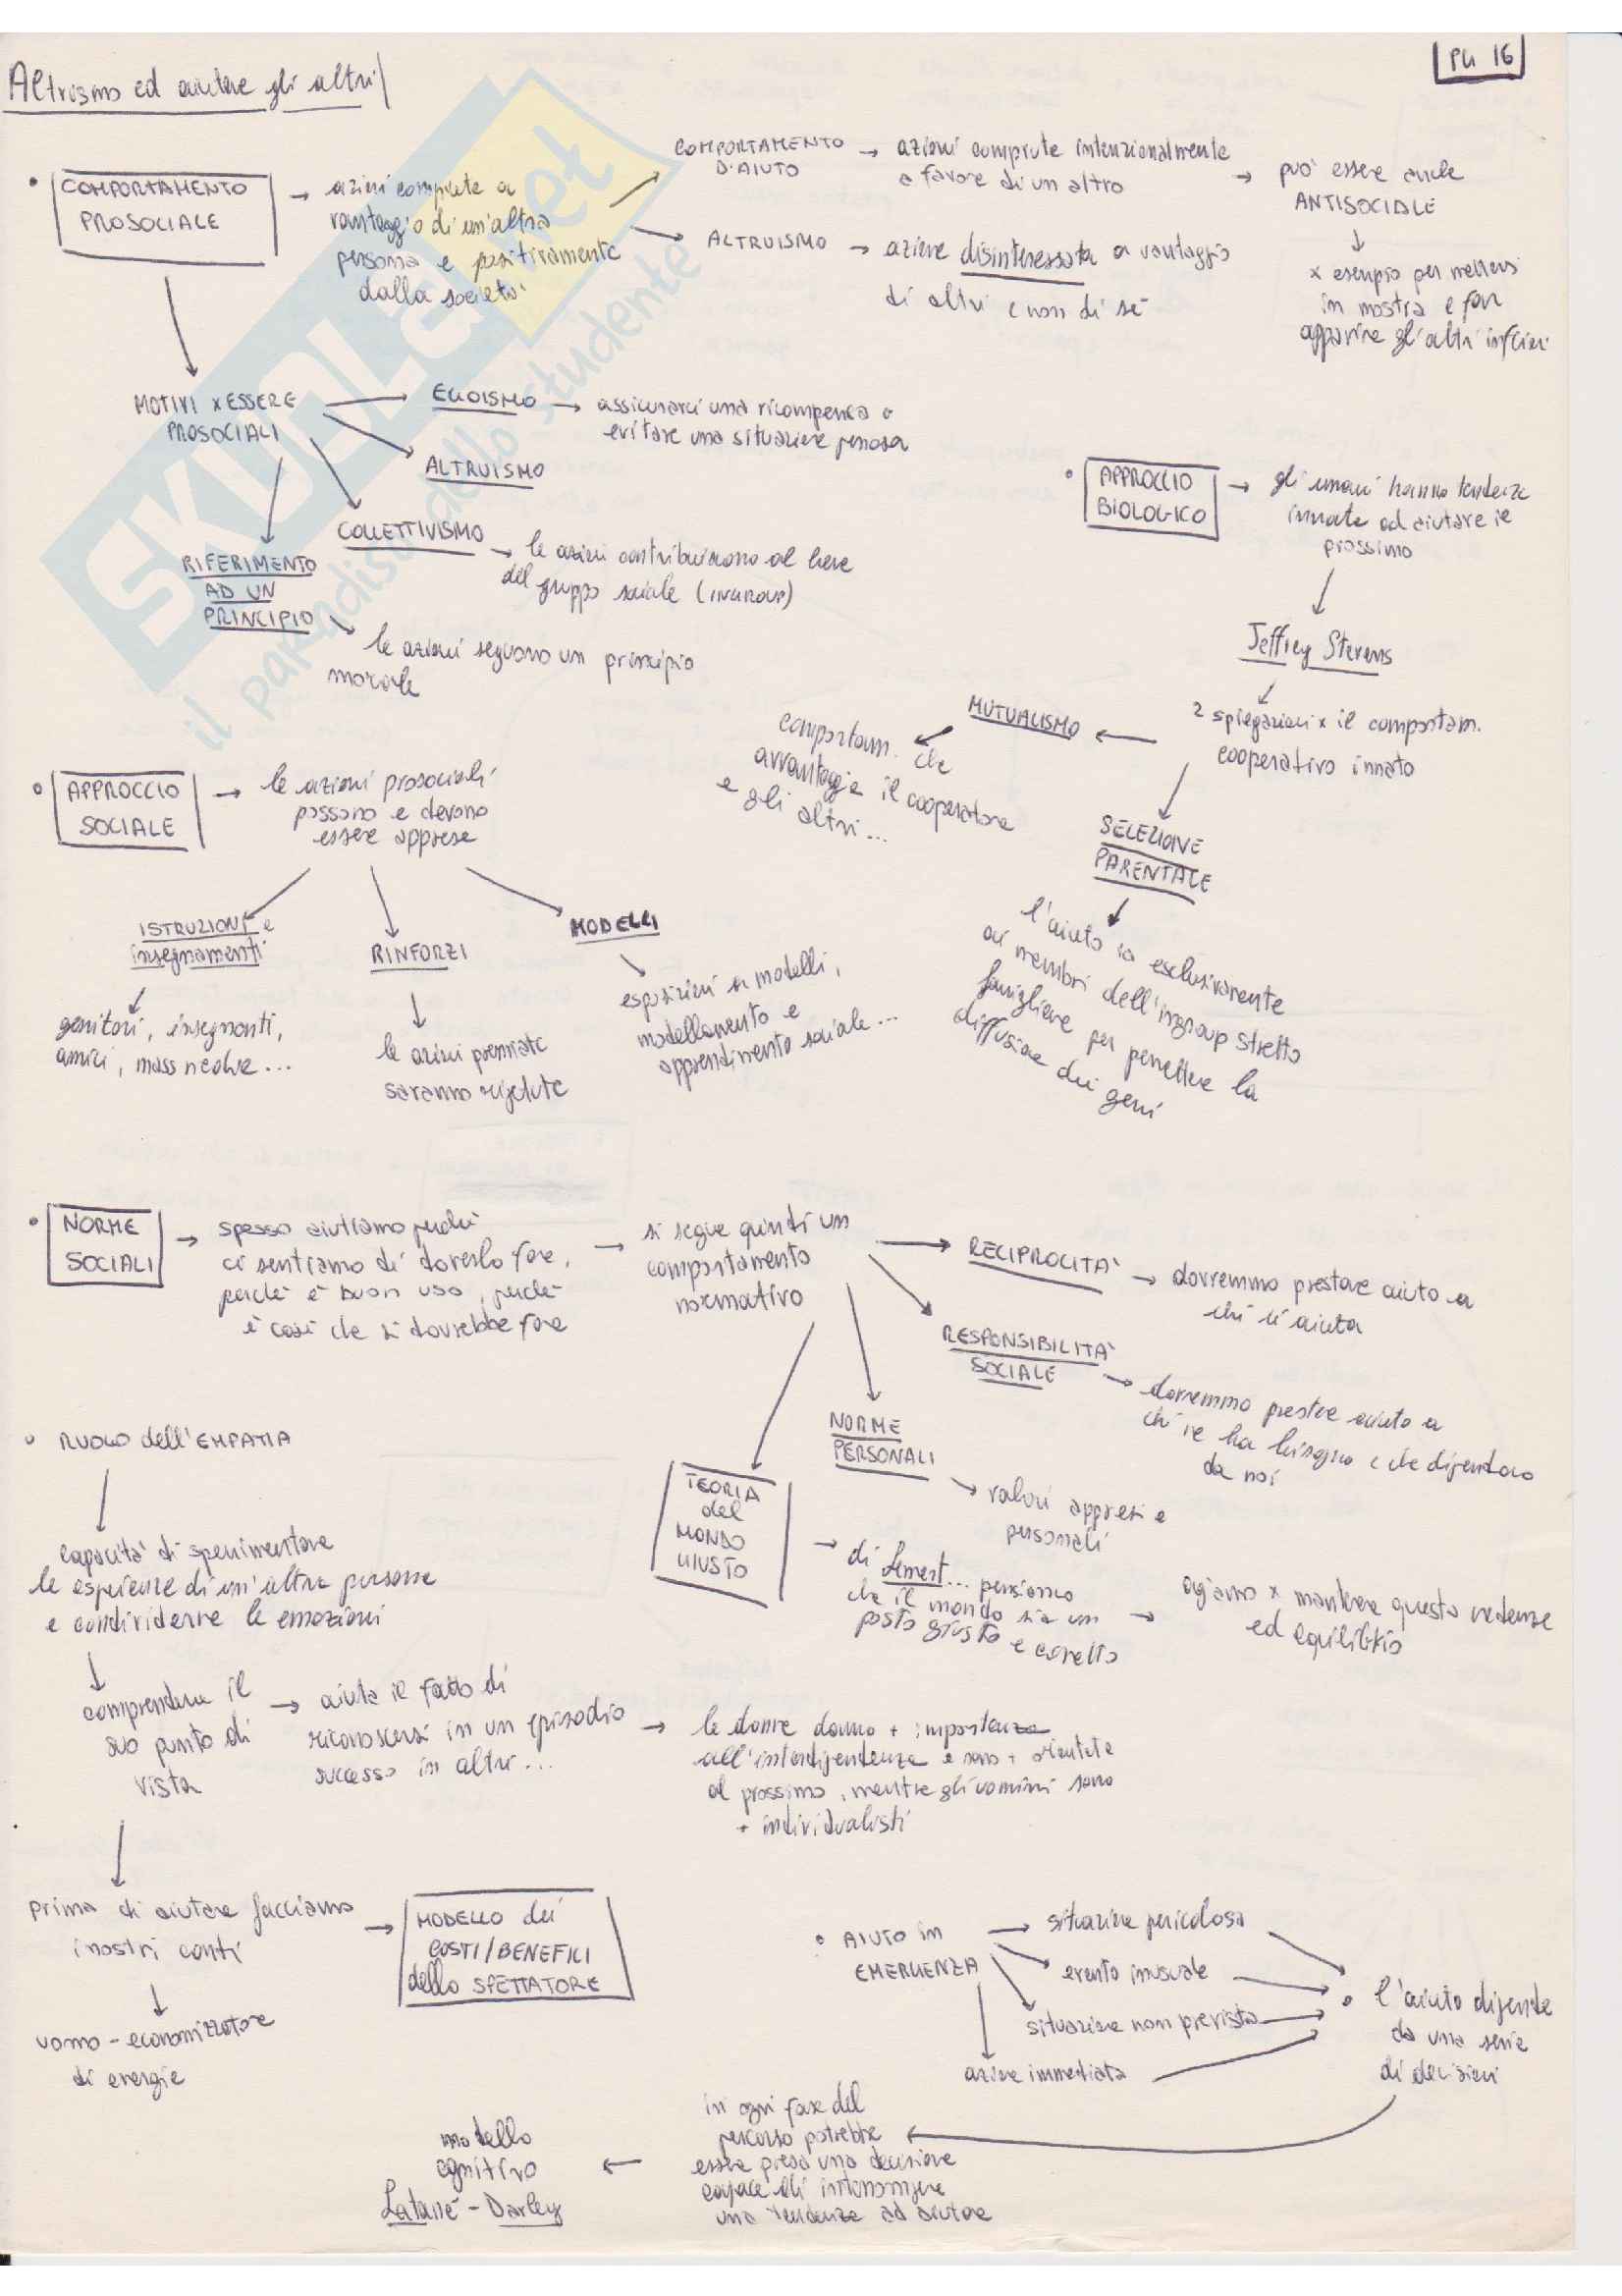 PG 16
Altrismo ed aiutare gli altri
COMPORTAMENTO
PROSOCIALE
azioni compiute a
vantaggio di un'altra
persona e positivamente
dalla società
COMPORTAMENTO
D'AIUTO
azioni compiute intenzionalmente
a favore di un altro
può essere anche
ANTISOCIALE
x esempio per mettersi
in mostra e far
apparire gli altri inferiori
ALTRUISMO
azione disinteressata a vantaggio
di altri e non di sé
MOTIVI x ESSERE
PROSOCIALI
EGOISMO
assicurarci una ricompensa o
evitare una situazione penosa
ALTRUISMO
COLLETTIVISMO
le azioni contribuiscono al bene
del gruppo sociale (INGROUP)
RIFERIMENTO
AD UN
PRINCIPIO
le azioni seguono un principio
morale
APPROCCIO
BIOLOGICO
gli umani hanno tendenze
innate ad aiutare il
prossimo
Jeffrey Stevens
2 spiegazioni x il comportam.
cooperativo innato
MUTUALISMO
comportam. che
avvantaggia il cooperatore
e gli altri...
SELEZIONE
PARENTALE
l'aiuto va esclusivamente
ai membri dell'ingroup stretto
famigliare per permettere la
diffusione dei geni
APPROCCIO
SOCIALE
le azioni prosociali
possono e devono
essere apprese
ISTRUZIONI e
insegnamenti
genitori, insegnanti,
amici, mass media...
RINFORZI
le azioni premiate
saranno ripetute
MODELLI
esposizioni a modelli,
modellamento e
apprendimento sociale...
NORME
SOCIALI
spesso aiutiamo perché
ci sentiamo di doverlo fare,
perché è buon uso, perché
è così che si dovrebbe fare
si segue quindi un
comportamento
normativo
RECIPROCITA'
dovremmo prestare aiuto a
chi ci aiuta
RESPONSIBILITA'
SOCIALE
dovremmo prestare aiuto a
chi ne ha bisogno e che dipendono
da noi
NORME
PERSONALI
valori appresi e
personali
TEORIA
del
MONDO
GIUSTO
di Lemert... pensiamo
che il mondo sia un
posto giusto e corretto
agiamo x mantenere questa credenza
ed equilibrio
RUOLO dell'EMPATIA
capacità di sperimentare
le esperienze di un'altra persona
e condividerne le emozioni
comprendere il
suo punto di
vista
aiuta il fatto di
riconoscersi in un episodio
successo in altri...
le donne danno + importanza
all'interdipendenza e sono + orientate
al prossimo, mentre gli uomini sono
+ individualisti
prima di aiutare facciamo
i nostri conti
MODELLO dei
COSTI/BENEFICI
dello SPETTATORE
uomo-economizzatore
di energie
AIUTO in
EMERGENZA
situazione pericolosa
evento inusuale
situazione non prevista
azione immediata
l'aiuto dipende
da una serie
di decisioni
in ogni fase del
percorso potrebbe
essere presa una decisione
capace di interrompere
una tendenza ad aiutare
modello
cognitivo
Latané - Darley
SKUOLA.net
il paradiso dello studente